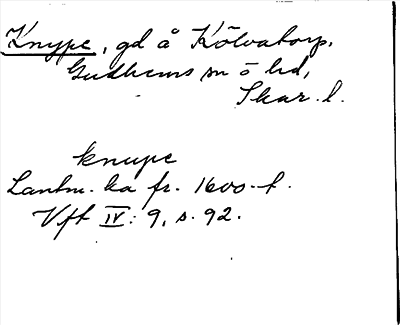 Knype, gd å Kölvatorp,
Gudhems sn o hd,
Skar. l.
knupe
Lantm. ka fr. 1600-t.
Vft IV: 9, s. 92.